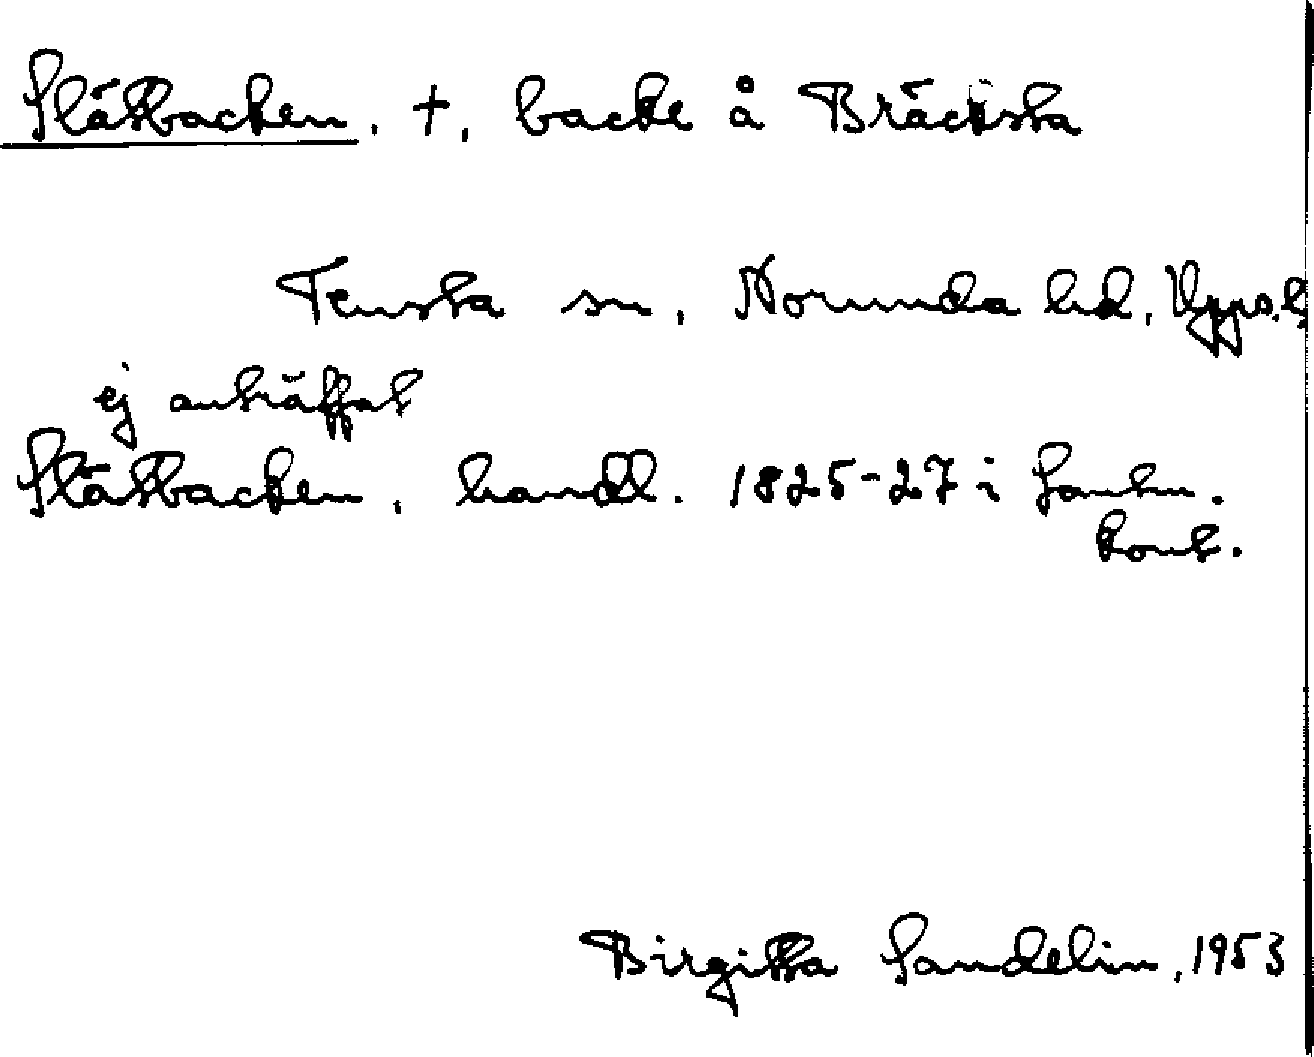 Slätbacken, +, backe å Bräcksta
Tensta sn, Norunda hd, Upps.l
ej anträffat
Slätbacken, handl. 1825-27 i Lantm.
kont.
Birgitta Sandelin, 1953